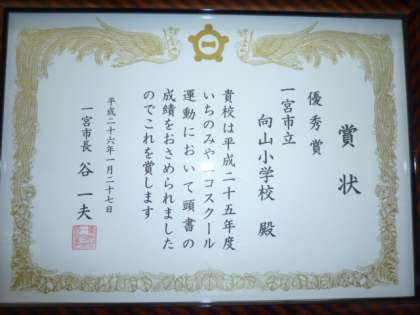 賞状
優秀賞
一宮市立
向山小学校 殿
貴校は平成二十五年度
いちのみやエコスクール
運動において頭書の
成績をおさめられました
のでこれを賞します
平成二十六年一月二十七日
一宮市長 谷 一夫